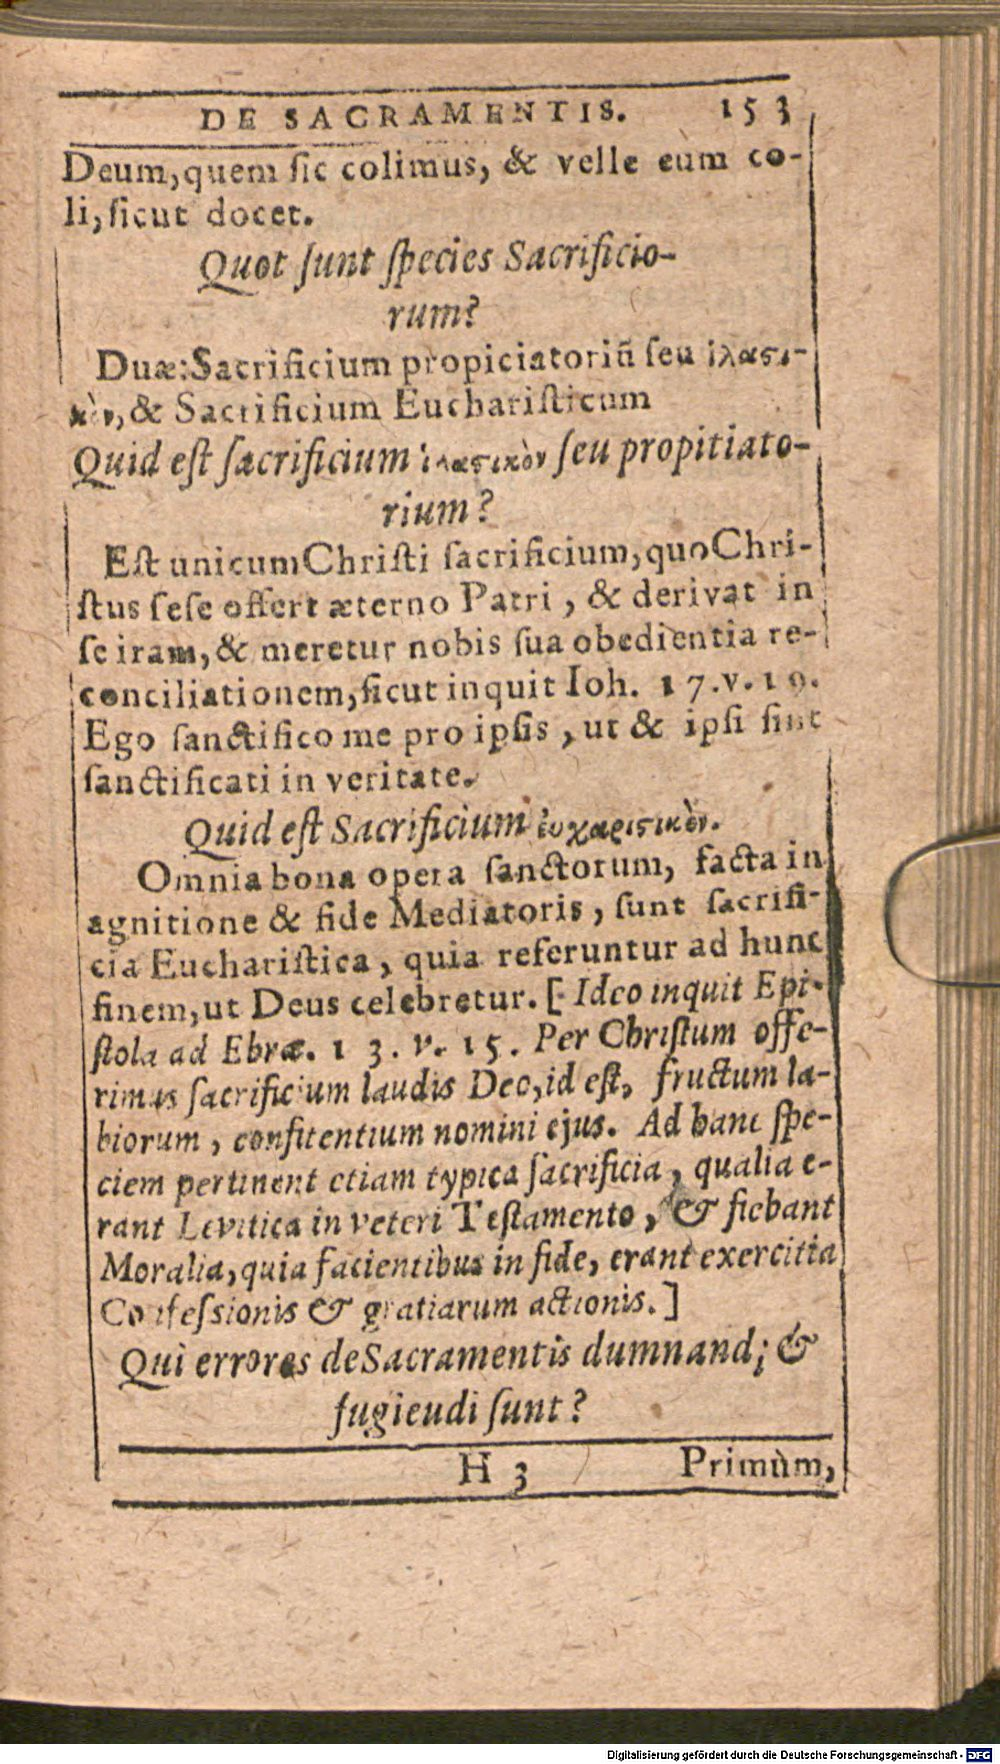 DE SACRAMENTIS. 153
Deum, quem ſic colimus, & velle eum co-
li, ſicut docet.
Quot ſunt ſpecies Sacrificio-
rum?
Duæ: Sacrificium propiciatoriũ ſeu ἱλαϛι-
κὸν, & Sacrificium Euchariſticum
Quid eſt ſacrificium ἱλαϛικὸν ſeu propitiato-
rium?
Eſt unicum Chriſti ſacrificium, quo Chri-
ſtus ſeſe offert æterno Patri, & derivat in
ſe iram, & meretur nobis ſua obedientia re-
conciliationem, ſicut inquit Ioh. 17. v. 19.
Ego ſanctifico me pro ipſis, ut & ipſi ſint
ſanctificati in veritate.
Quid eſt Sacrificium ἐυχαριϛικὸν.
Omnia bona opera ſanctorum, facta in
agnitione & fide Mediatoris, ſunt ſacrifi-
cia Euchariſtica, quia referuntur ad hunc
finem, ut Deus celebretur. [Ideo inquit Epi-
ſtola ad Ebræ. 13. v. 15. Per Chriſtum offe-
rimus ſacrificium laudis Deo, id eſt, fructum la-
biorum, confitentium nomini ejus. Ad hanc ſpe-
ciem pertinent etiam typica ſacrificia, qualia e-
rant Levitica in veteri Teſtamento, & fiebant
Moralia, quia facientibus in fide, erant exercitia
Confeſsionis & gratiarum actionis.]
Qui errores de Sacramentis dumnandi &
fugieudi ſunt?
H 3 Primùm,
Digitalisierung gefördert durch die Deutsche Forschungsgemeinschaft - DFG